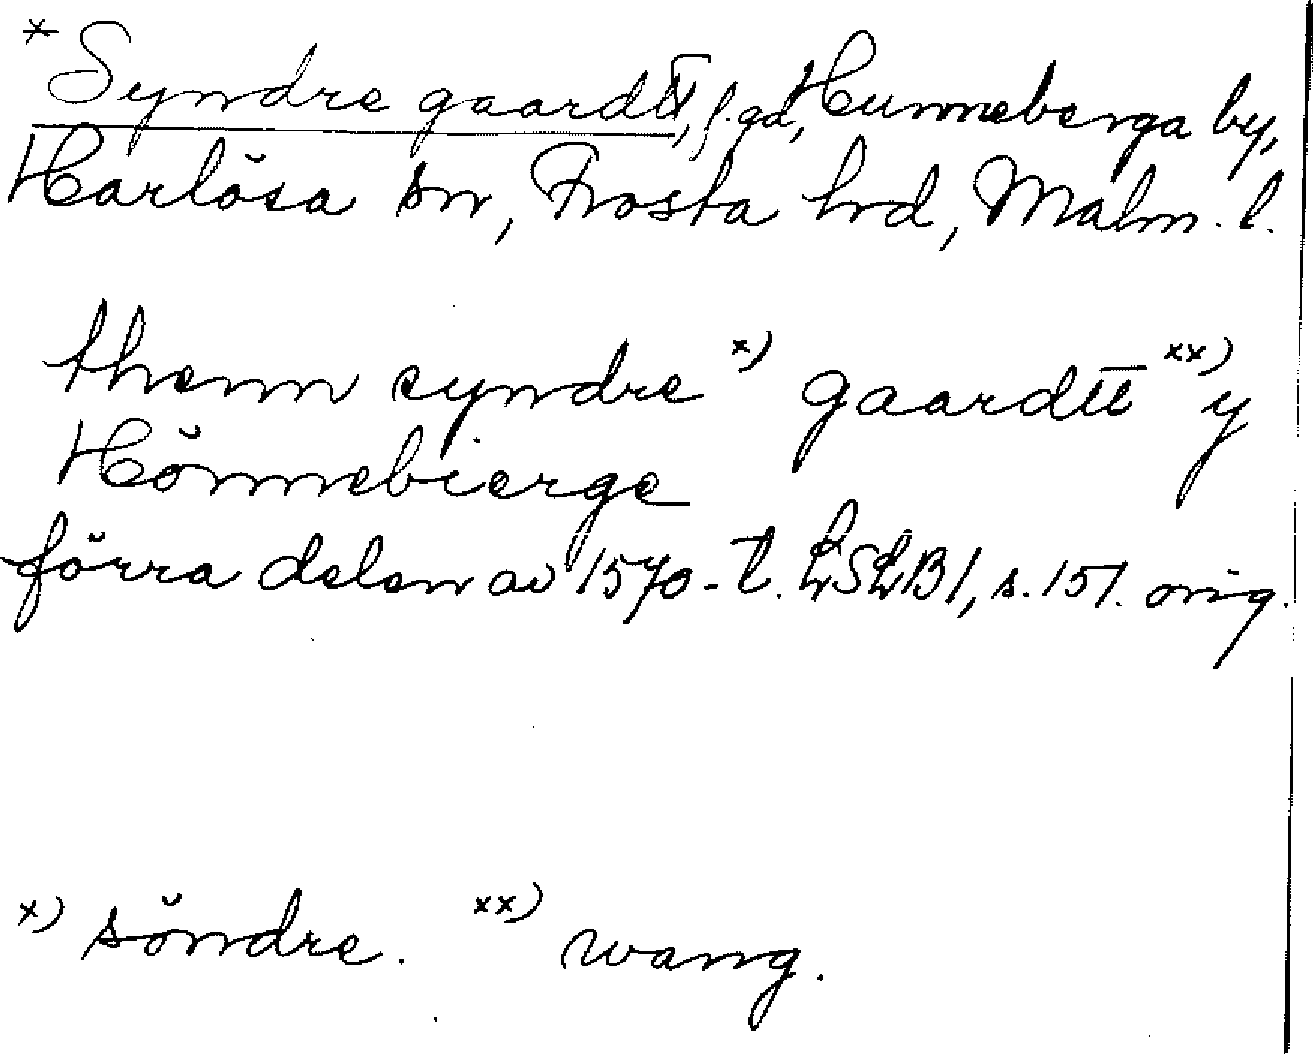 *Syndre gaardtt, f. gd, Hunneberga by,
Harlösa sn, Frosta hrd, Malm. l.
thenn syndre x) gaardtt xx) y
Hönnebierge
förra delen av 1570-t. LSLB1, s. 151. orig.
x) söndre. xx) wang.